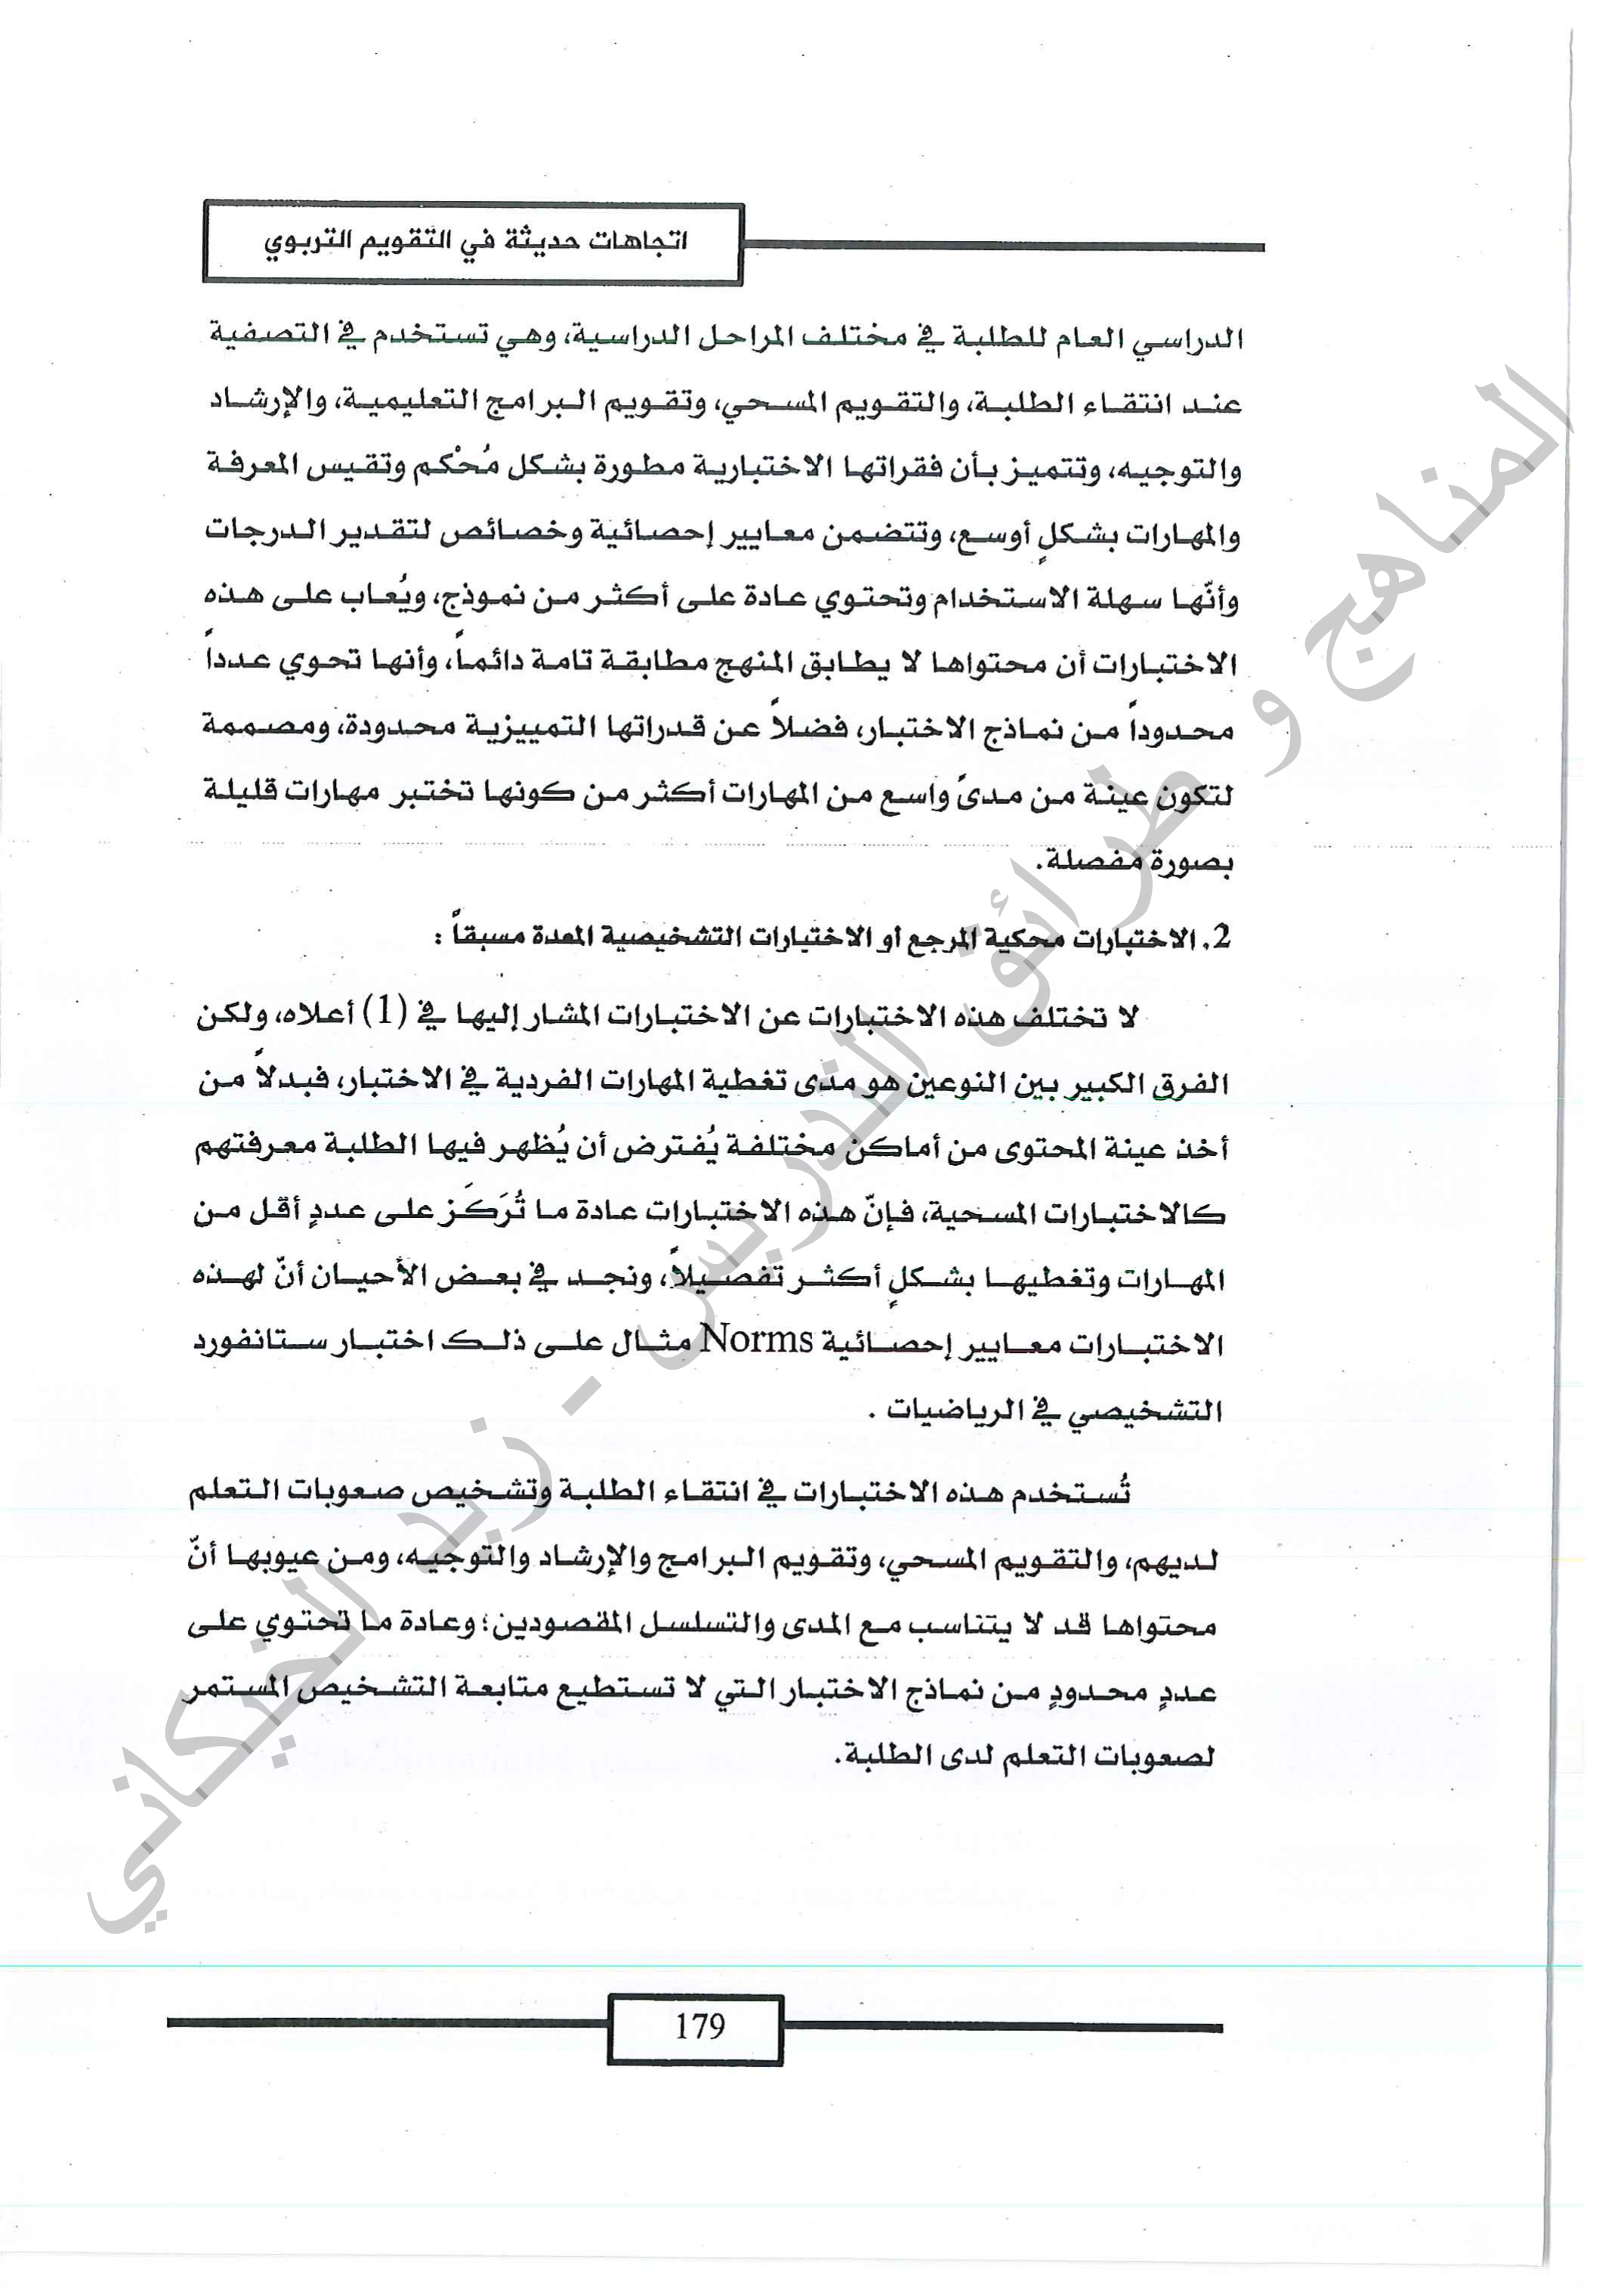 اتجاهات حديثة في التقويم التربوي
الدراسي العام للطلبة في مختلف المراحل الدراسية، وهي تستخدم في التصفية
عند انتقاء الطلبة، والتقويم المسحي، وتقويم البرامج التعليمية، والإرشاد
والتوجيه، وتتميز بأن فقراتها الاختبارية مطورة بشكل مُحْكم وتقيس المعرفة
والمهارات بشكلٍ أوسع، وتتضمن معايير إحصائية وخصائص لتقدير الدرجات
وأنّها سهلة الاستخدام وتحتوي عادة على أكثر من نموذج، ويُعاب على هذه
الاختبارات أن محتواها لا يطابق المنهج مطابقة تامة دائماً، وأنها تحوي عدداً
محدوداً من نماذج الاختبار، فضلاً عن قدراتها التمييزية محدودة، ومصممة
لتكون عينة من مدىً واسع من المهارات أكثر من كونها تختبر مهارات قليلة
بصورة مفصلة.
2. الاختبارات محكية المرجع أو الاختبارات التشخيصية المعدة مسبقاً :
لا تختلف هذه الاختبارات عن الاختبارات المشار إليها في (1) أعلاه، ولكن
الفرق الكبير بين النوعين هو مدى تغطية المهارات الفردية في الاختبار، فبدلاً من
أخذ عينة المحتوى من أماكن مختلفة يُفترض أن يُظهر فيها الطلبة معرفتهم
كالاختبارات المسحية، فإنّ هذه الاختبارات عادة ما تُرَكَز على عددٍ أقل من
المهارات وتغطيها بشكلٍ أكثر تفصيلاً، ونجد في بعض الأحيان أنّ لهذه
الاختبارات معايير إحصائية Norms مثال على ذلك اختبار ستانفورد
التشخيصي في الرياضيات .
تُستخدم هذه الاختبارات في انتقاء الطلبة وتشخيص صعوبات التعلم
لديهم، والتقويم المسحي، وتقويم البرامج والإرشاد والتوجيه، ومن عيوبها أنّ
محتواها قد لا يتناسب مع المدى والتسلسل المقصودين؛ وعادة ما تحتوي على
عددٍ محدودٍ من نماذج الاختبار التي لا تستطيع متابعة التشخيص المستمر
لصعوبات التعلم لدى الطلبة.
179
المناهج و طرائق التدريس - زيد الخيكاني